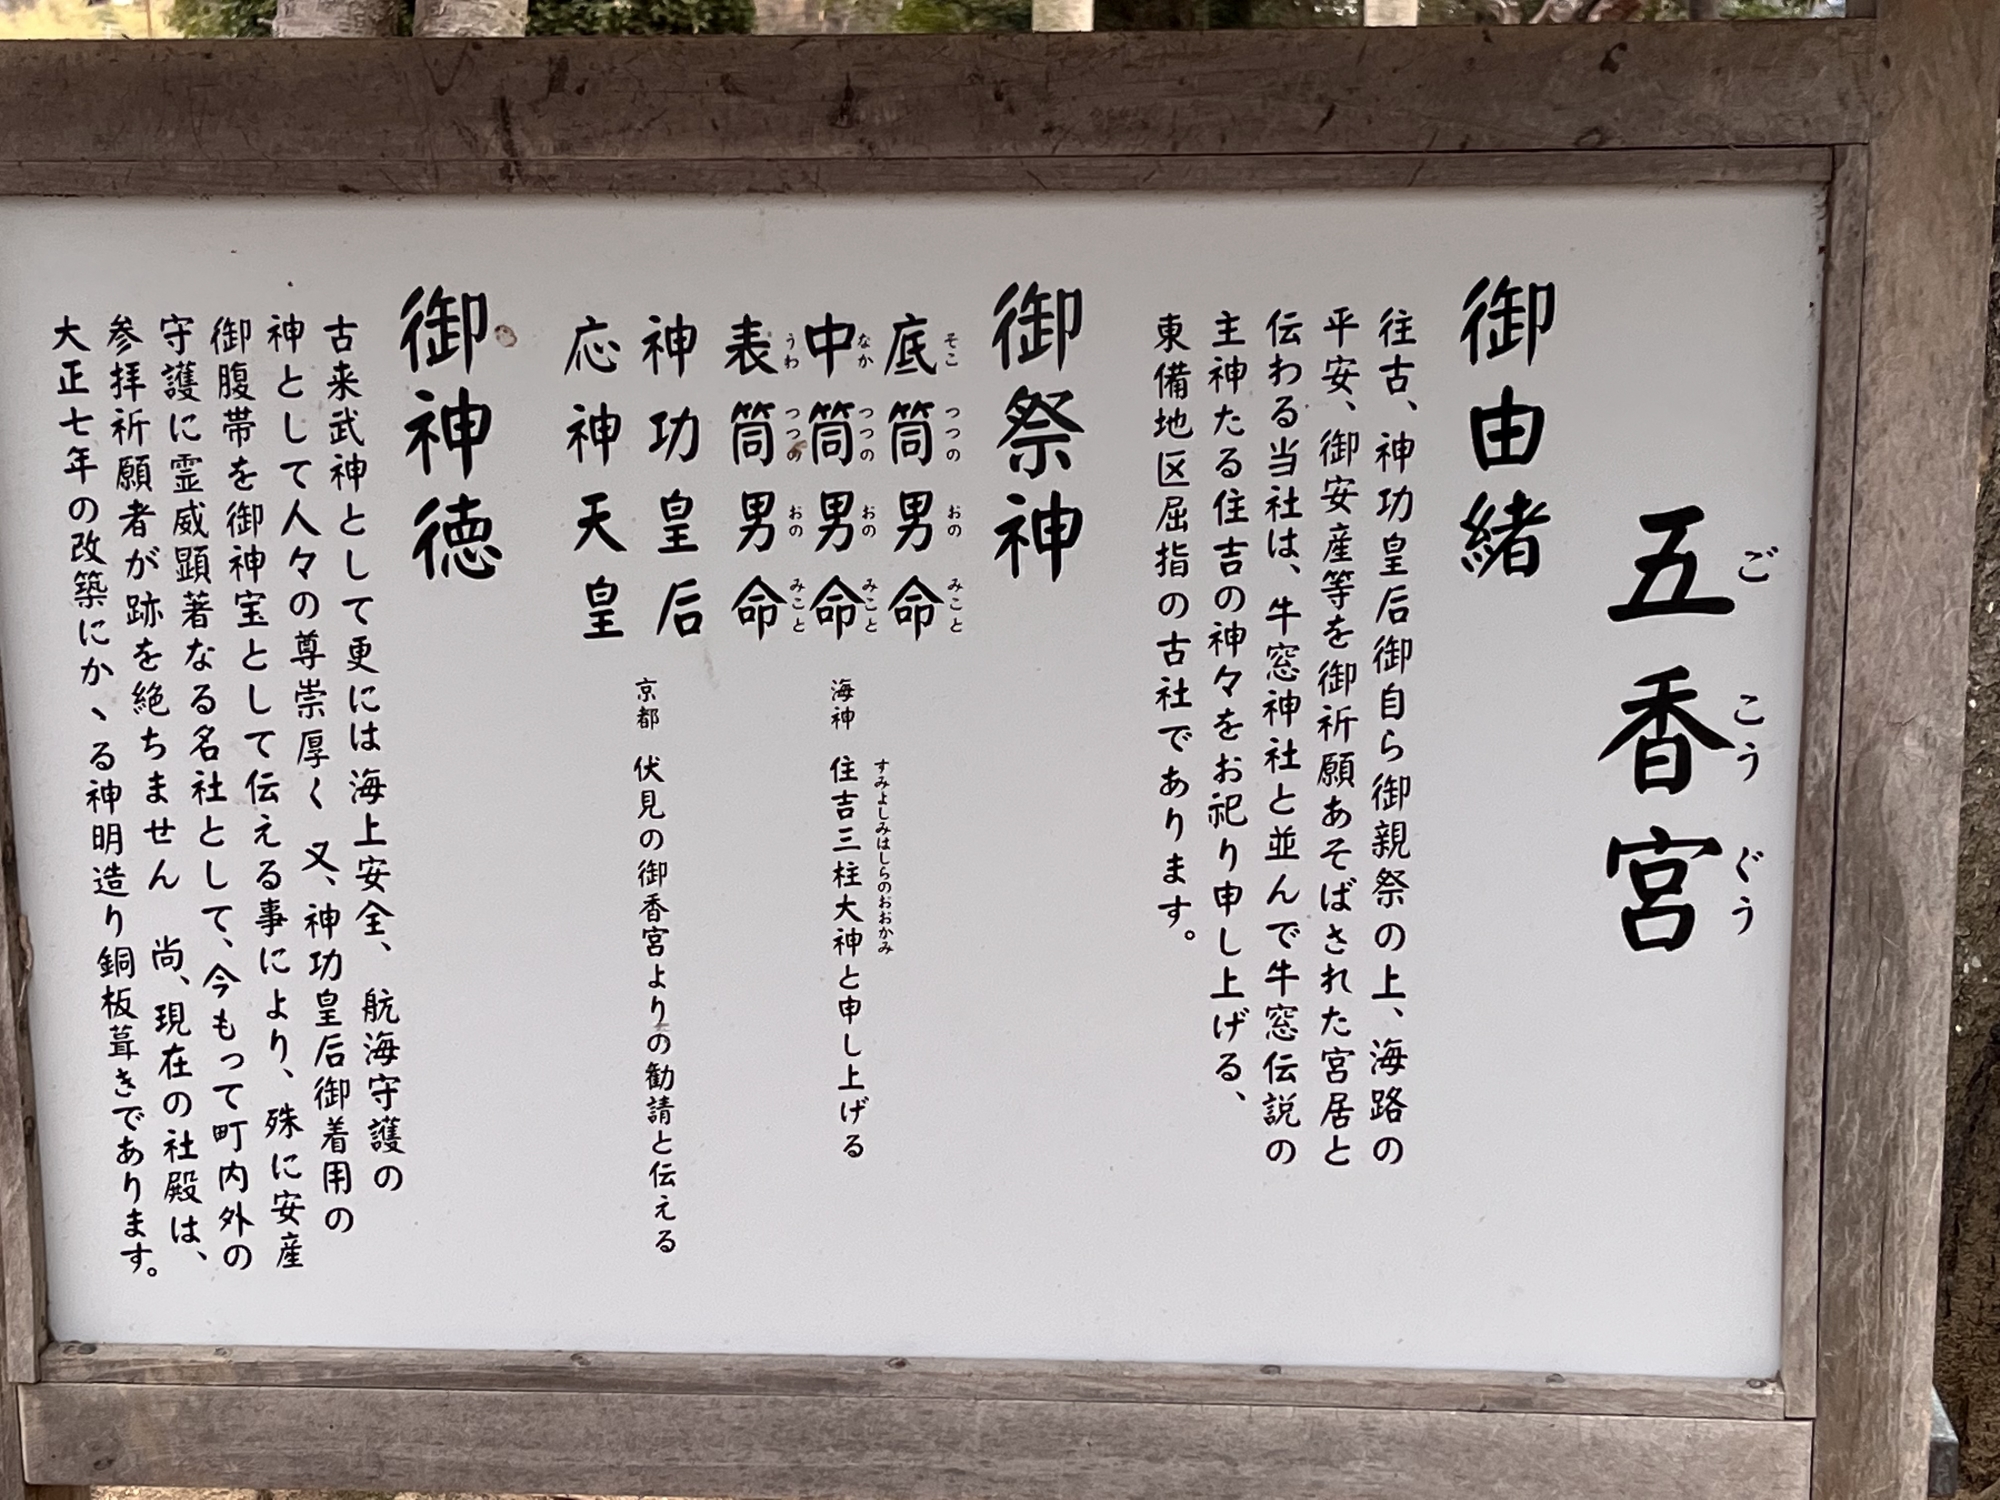 五香宮
ごこうぐう
御由緒
往古、神功皇后御自ら御親祭の上、海路の
平安、御安産等を御祈願あそばされた宮居と
伝わる当社は、牛窓神社と並んで牛窓伝説の
主神たる住吉の神々をお祀り申し上げる、
東備地区屈指の古社であります。
御祭神
底筒男命
そこつつのおのみこと
中筒男命
なかつつのおのみこと
表筒男命
うわつつのおのみこと
海神 住吉三柱大神と申し上げる
すみよしみはしらのおおかみ
神功皇后
応神天皇
京都 伏見の御香宮よりの勧請と伝える
御神徳
古来武神として更には海上安全、航海守護の
神として人々の尊崇厚く 又、神功皇后御着用の
御腹帯を御神宝として伝える事により、殊に安産
守護に霊威顕著なる名社として、今もって町内外の
参拝祈願者が跡を絶ちません 尚、現在の社殿は、
大正七年の改築にかゝる神明造り銅板葺きであります。